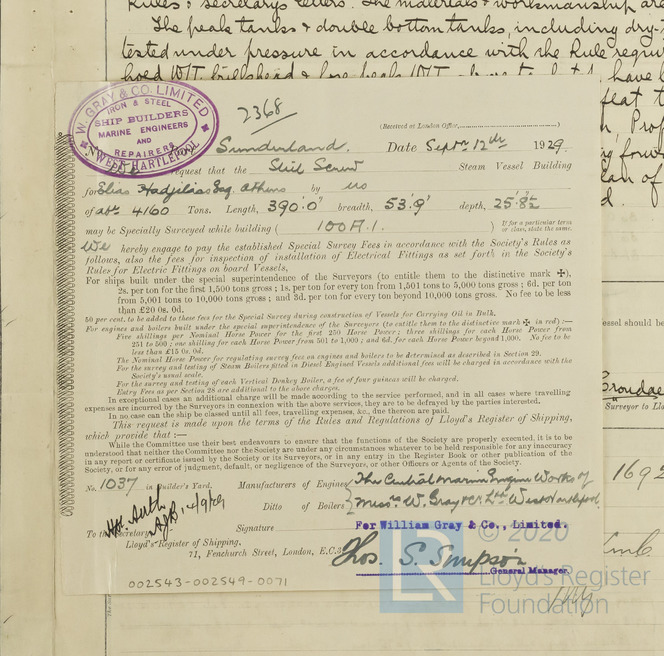 Rules & Secretary's letters. The materials & workmanship are
The peak tanks & double bottom tanks, including dry-
tested under pressure in accordance with the Rule requi
have b
W. GRAY & CO. LIMITED
IRON & STEEL
SHIP BUILDERS
MARINE ENGINEERS
AND
REPAIRERS
WEST HARTLEPOOL
2368
(Received at London Office,
Sunderland. Date Septr 12th 1929.
request that the Steel Screw Steam Vessel Building
for Elias Hadjilias Esq. Athens by us
of abt 4160 Tons. Length, 390'.0" breadth, 53'.9" depth, 25'.8½
may be Specially Surveyed while building ( 100A.1. ) If for a particular term or class, state the same.
We hereby engage to pay the established Special Survey Fees in accordance with the Society's Rules as
follows, also the fees for inspection of installation of Electrical Fittings as set forth in the Society's
Rules for Electric Fittings on board Vessels,
For ships built under the special superintendence of the Surveyors (to entitle them to the distinctive mark ✠),
2s. per ton for the first 1,500 tons gross; 1s. per ton for every ton from 1,501 tons to 5,000 tons gross; 6d. per ton
from 5,001 tons to 10,000 tons gross; and 3d. per ton for every ton beyond 10,000 tons gross. No fee to be less
than £20 0s. 0d.
50 per cent. to be added to these fees for the Special Survey during construction of Vessels for Carrying Oil in Bulk.
For engines and boilers built under the special superintendence of the Surveyors (to entitle them to the distinctive mark ✠ in red) :—
Five shillings per Nominal Horse Power for the first 250 Horse Power; three shillings for each Horse Power from
251 to 500; one shilling for each Horse Power from 501 to 1,000; and 6d. for each Horse Power beyond 1,000. No fee to be
less than £15 0s. 0d.
The Nominal Horse Power for regulating survey fees on engines and boilers to be determined as described in Section 29.
For the survey and testing of Steam Boilers fitted in Diesel Engined Vessels additional fees will be charged in accordance with the
Society's usual scale.
For the survey and testing of each Vertical Donkey Boiler, a fee of four guineas will be charged.
Entry Fees as per Section 28 are additional to the above charges.
In exceptional cases an additional charge will be made according to the service performed, and in all cases where travelling
expenses are incurred by the Surveyors in connexion with the above services, they are to be defrayed by the parties interested.
In no case can the ship be classed until all fees, travelling expenses, &c., due thereon are paid.
This request is made upon the terms of the Rules and Regulations of Lloyd's Register of Shipping,
which provide that :—
While the Committee use their best endeavours to ensure that the functions of the Society are properly executed, it is to be
understood that neither the Committee nor the Society are under any circumstances whatever to be held responsible for any inaccuracy
in any report or certificate issued by the Society or its Surveyors, or in any entry in the Register Book or other publication of the
Society, or for any error of judgment, default, or negligence of the Surveyors, or other Officers or Agents of the Society.
No. 1037 in Builder's Yard. Manufacturers of Engines The Central Marine Engine Works of
Ditto of Boilers Messrs W. Gray & Co. Ltd West Hartlepool
14/9/29
For William Gray & Co., Limited.
To the Secretary Signature
Lloyd's Register of Shipping,
71, Fenchurch Street, London, E.C.3
Thos. S. Simpson
General Manager.
002543-002549-0071
essel should be
Surveyor to Ll
1692
© 2020
LR
Lloyd's Register
Foundation